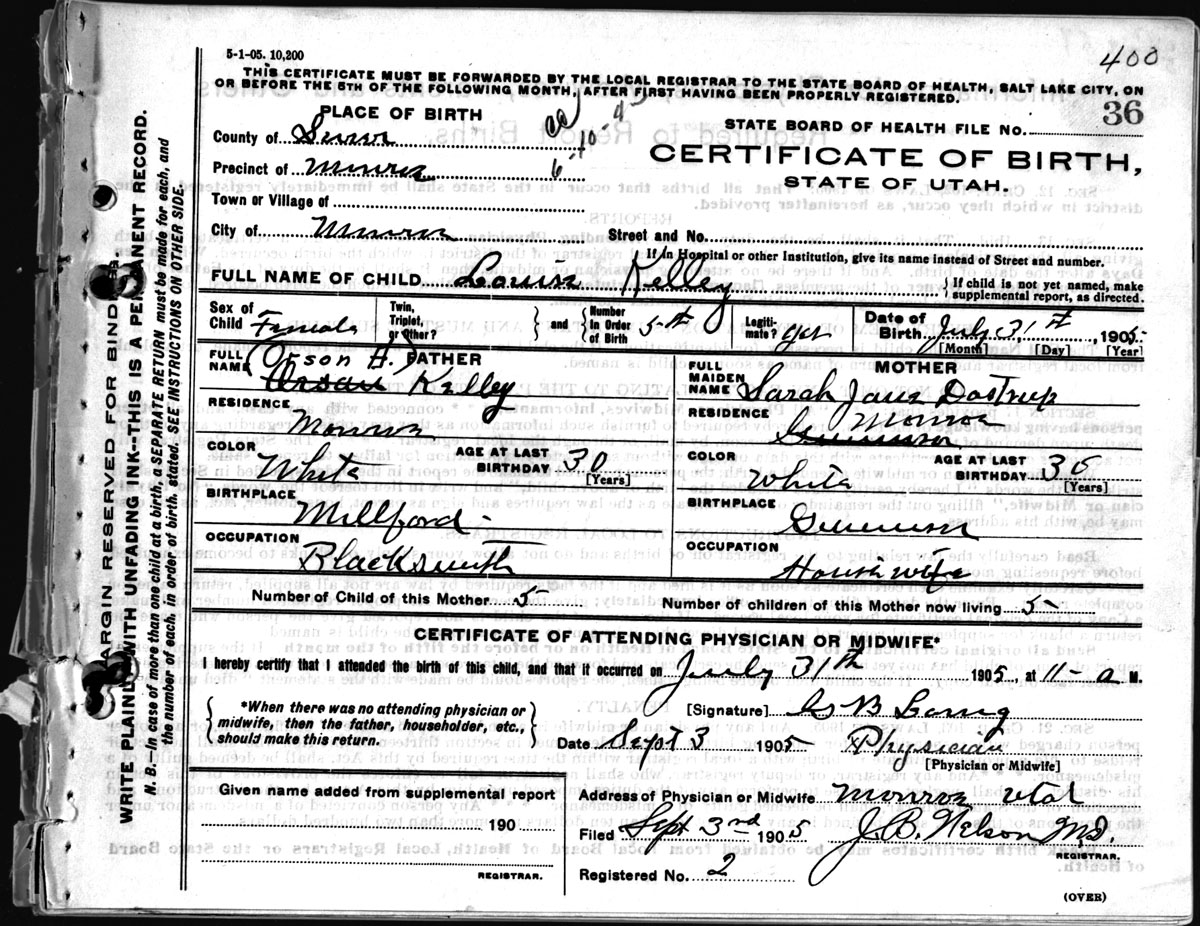 5-1-05. 10,200
400
THIS CERTIFICATE MUST BE FORWARDED BY THE LOCAL REGISTRAR TO THE STATE BOARD OF HEALTH, SALT LAKE CITY, ON
OR BEFORE THE 5TH OF THE FOLLOWING MONTH, AFTER FIRST HAVING BEEN PROPERLY REGISTERED.
PLACE OF BIRTH
County of Sevier
Precinct of Monroe
Town or Village of
City of Monroe
STATE BOARD OF HEALTH FILE No. 36
CERTIFICATE OF BIRTH,
STATE OF UTAH.
Street and No.
If in Hospital or other Institution, give its name instead of Street and number.
FULL NAME OF CHILD Louisa Kelley { If child is not yet named, make supplemental report, as directed.
Sex of Child Female
Twin, Triplet, or Other? } and { Number in Order of Birth 5-th
Legitimate? yes
Date of Birth July 31st, 1905
[Month] [Day] [Year]
FATHER
FULL NAME Orson H. Kelley
RESIDENCE Monroe
COLOR White
AGE AT LAST BIRTHDAY 30 [Years]
BIRTHPLACE Millford -
OCCUPATION Blacksmith
MOTHER
FULL MAIDEN NAME Sarah Jane Dastrup
RESIDENCE Gunnison Monroe
COLOR White
AGE AT LAST BIRTHDAY 30 [Years]
BIRTHPLACE Gunnison
OCCUPATION House wife
Number of Child of this Mother 5
Number of children of this Mother now living 5
CERTIFICATE OF ATTENDING PHYSICIAN OR MIDWIFE*
I hereby certify that I attended the birth of this child, and that it occurred on July 31th 1905, at 11- a M.
{ *When there was no attending physician or midwife, then the father, householder, etc., should make this return. }
[Signature] B
Date Sept 3 1905 Physician
[Physician or Midwife]
Given name added from supplemental report
190
REGISTRAR.
Address of Physician or Midwife Monroe Utah
Filed Sept 3rd 1905 J. B. Nelson M.D.
REGISTRAR.
Registered No. 2
(OVER)
MARGIN RESERVED FOR BINDING
WRITE PLAINLY WITH UNFADING INK--THIS IS A PERMANENT RECORD.
N. B.--In case of more than one child at a birth, a SEPARATE RETURN must be made for each, and
the number of each, in order of birth, stated. SEE INSTRUCTIONS ON OTHER SIDE.